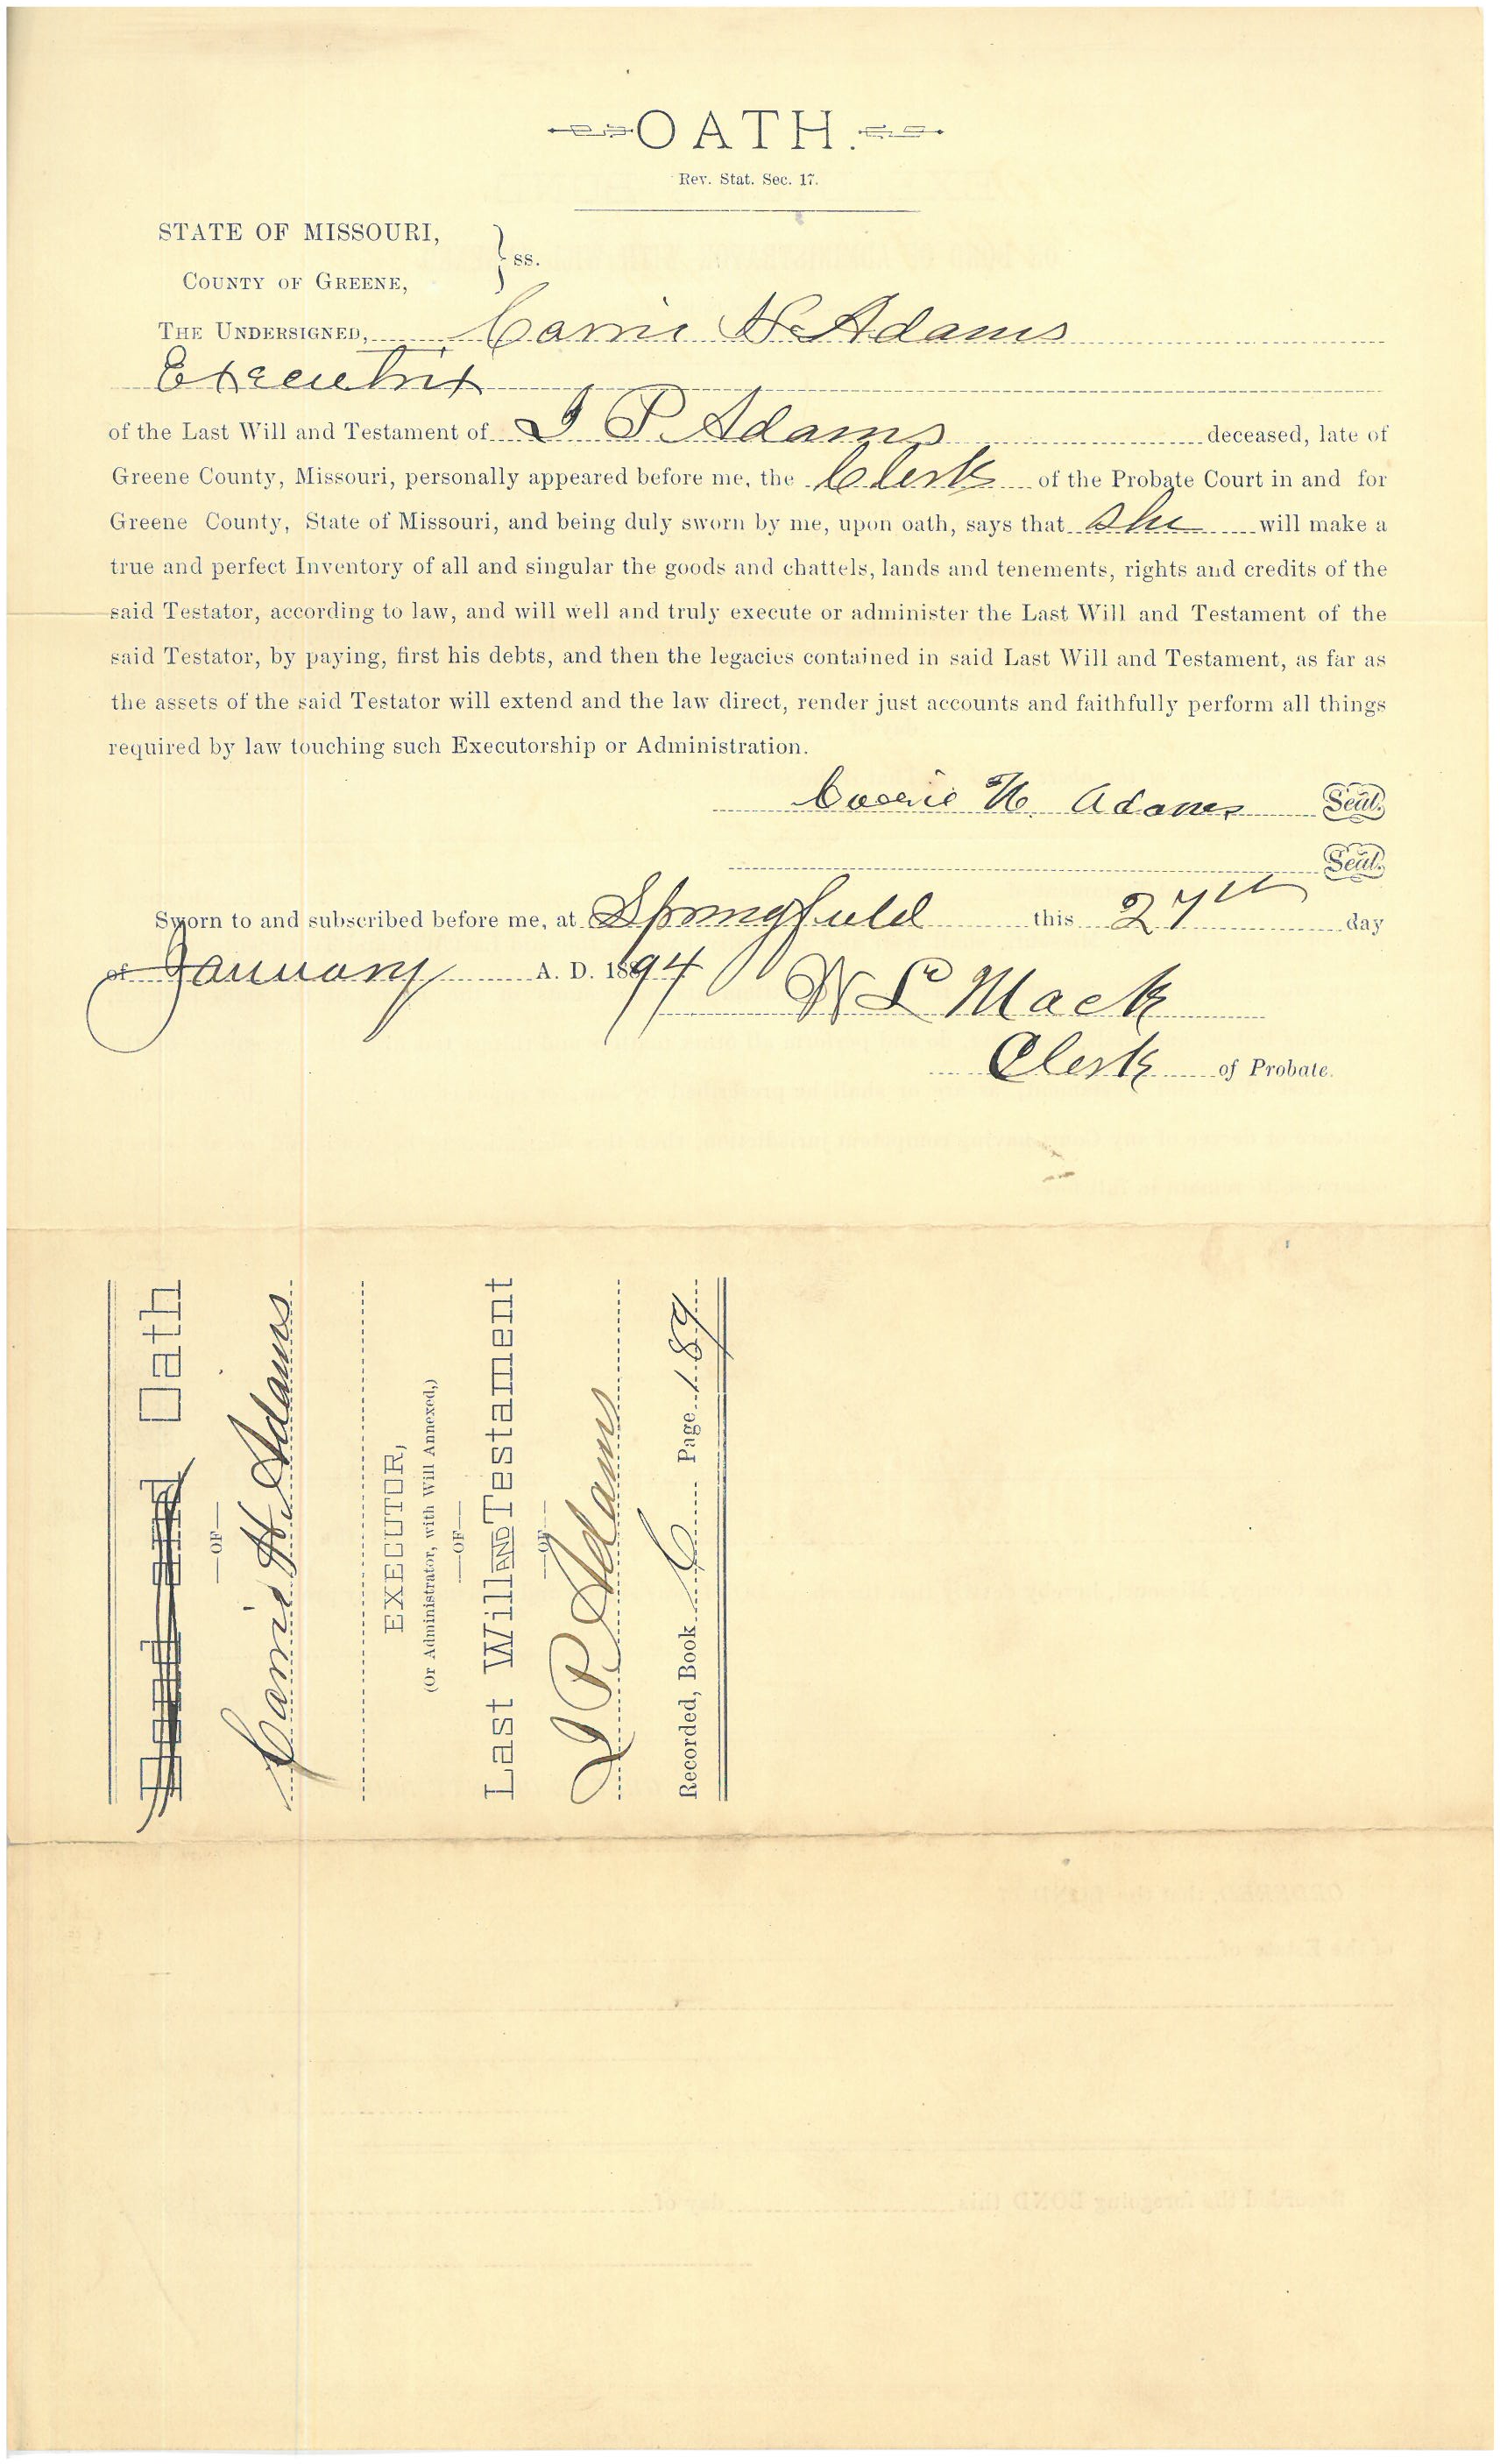 OATH.
Rev. Stat. Sec. 17.
STATE OF MISSOURI,
COUNTY OF GREENE, } ss.
THE UNDERSIGNED, Carrie H Adams
Executrix
of the Last Will and Testament of I P Adams deceased, late of
Greene County, Missouri, personally appeared before me, the Clerk of the Probate Court in and for
Greene County, State of Missouri, and being duly sworn by me, upon oath, says that she will make a
true and perfect Inventory of all and singular the goods and chattels, lands and tenements, rights and credits of the
said Testator, according to law, and will well and truly execute or administer the Last Will and Testament of the
said Testator, by paying, first his debts, and then the legacies contained in said Last Will and Testament, as far as
the assets of the said Testator will extend and the law direct, render just accounts and faithfully perform all things
required by law touching such Executorship or Administration.
Carrie H. Adams Seal.
Seal.
Sworn to and subscribed before me, at Springfield this 27th day
of January A. D. 1894
W L Mack
Clerk of Probate.
Oath
—OF—
Carrie H. Adams
EXECUTOR,
(Or Administrator, with Will Annexed,)
—OF—
Last Will AND Testament
—OF—
I P Adams
Recorded, Book Page 189